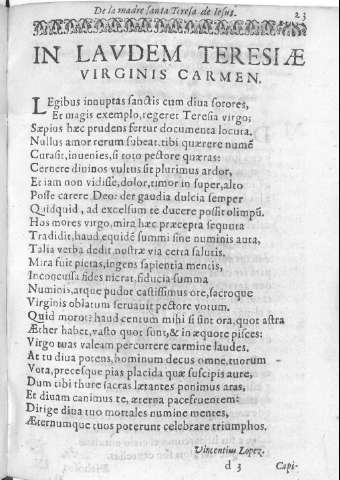 De la madre santa Teresa de Iesus.
23
IN LAVDEM TERESIÆ
VIRGINIS CARMEN.
LEgibus innuptas sanctis cum diua sorores,
Et magis exemplo, regeret Teresia virgo;
Sæpius hæc prudens fertur documenta locuta.
Nullus amor rerum subeat, tibi quærere numẽ
Curasit, inuenies, si toto pectore quæras:
Cernere diuinos vultus sit plurimus ardor,
Et iam non vidisse, dolor, timor in super, alto
Posse carere Deo: der gaudia dulcia semper
Quidquid, ad excelsum te ducere possit olimpũ.
Hos mores virgo, mira hæc præcepta sequuta
Tradidit, haud equidẽ summi sine numinis aura,
Talia verba dedit nostræ via certa salutis.
Mira fuit pietas, ingens sapientia mentis,
Inconcussa fides nicrat, fiducia summa
Numinis, atque pudor castissimus ore, sacroque
Virginis oblatum seruauit pectore votum.
Quid moror? haud centum mihi si sint ora, quot astra
Æther habet, vasto quot sunt, & in æquore pisces:
Virgo tuas valeam percurrere carmine laudes.
At tu diua potens, hominum decus omne, tuorum
Vota, precesque pias placida quæ suscipis aure,
Dum tibi thure sacras lætantes ponimus aras,
Et diuam canimus te, æterna pace fruentem:
Dirige diua tuo mortales numine mentes,
Æternumque tuos poterunt celebrare triumphos.
Vincentius Lopez.
d 3
Capi-